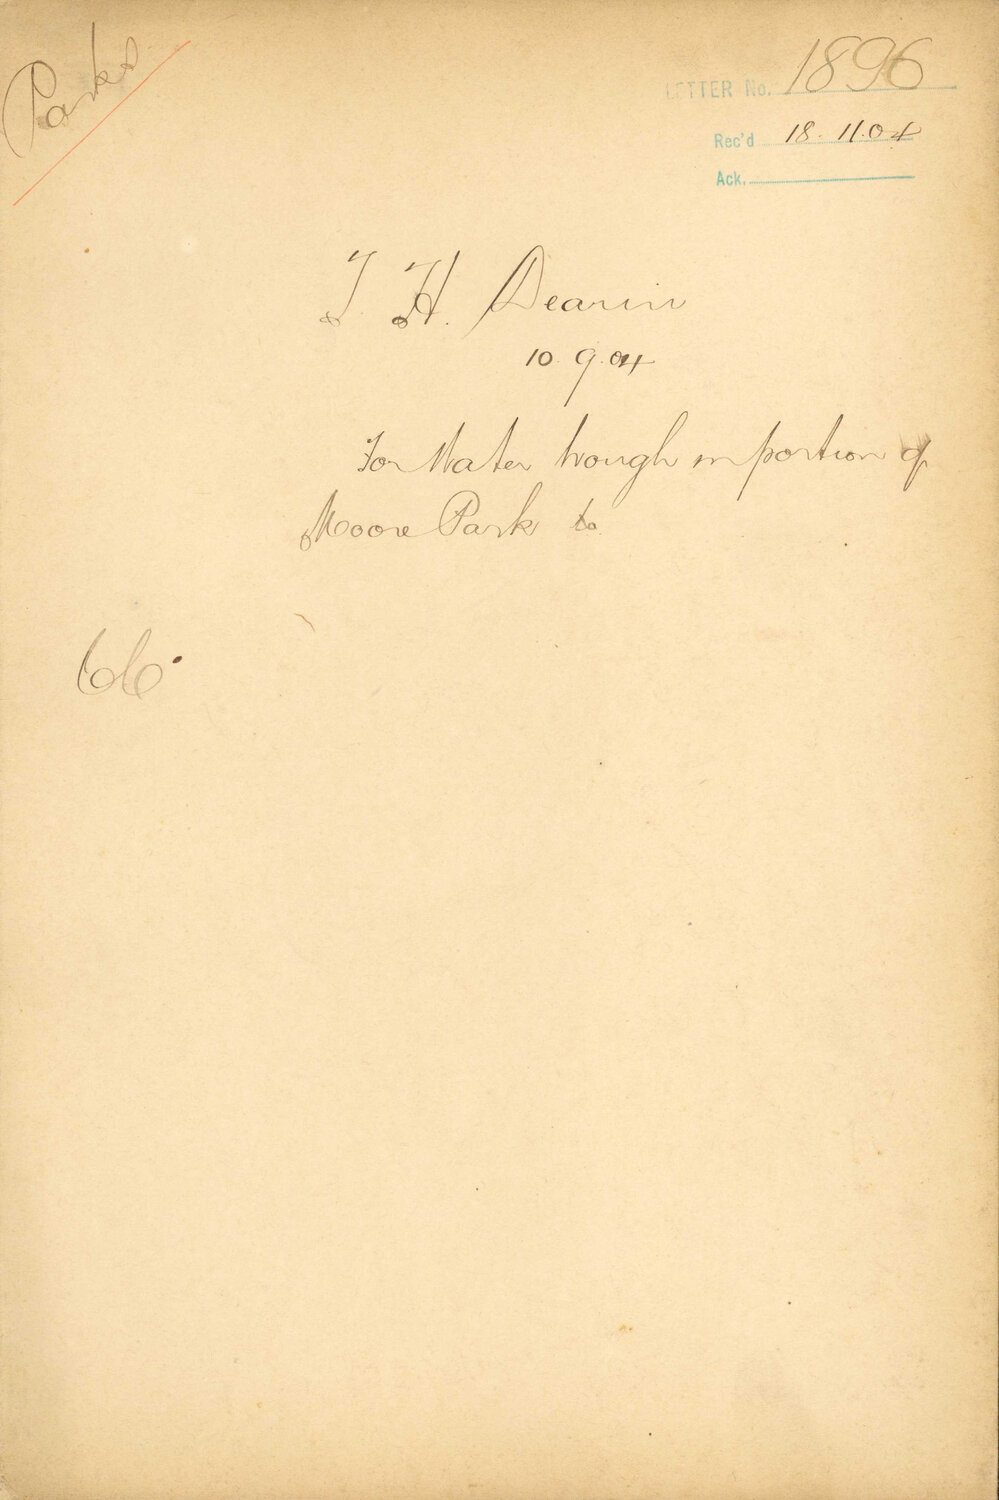 Parks
LETTER No. 1896
Rec'd 18.11.04
Ack.
T. H. Dearin
10.9.04
For Water trough in portion of
Moore Park to